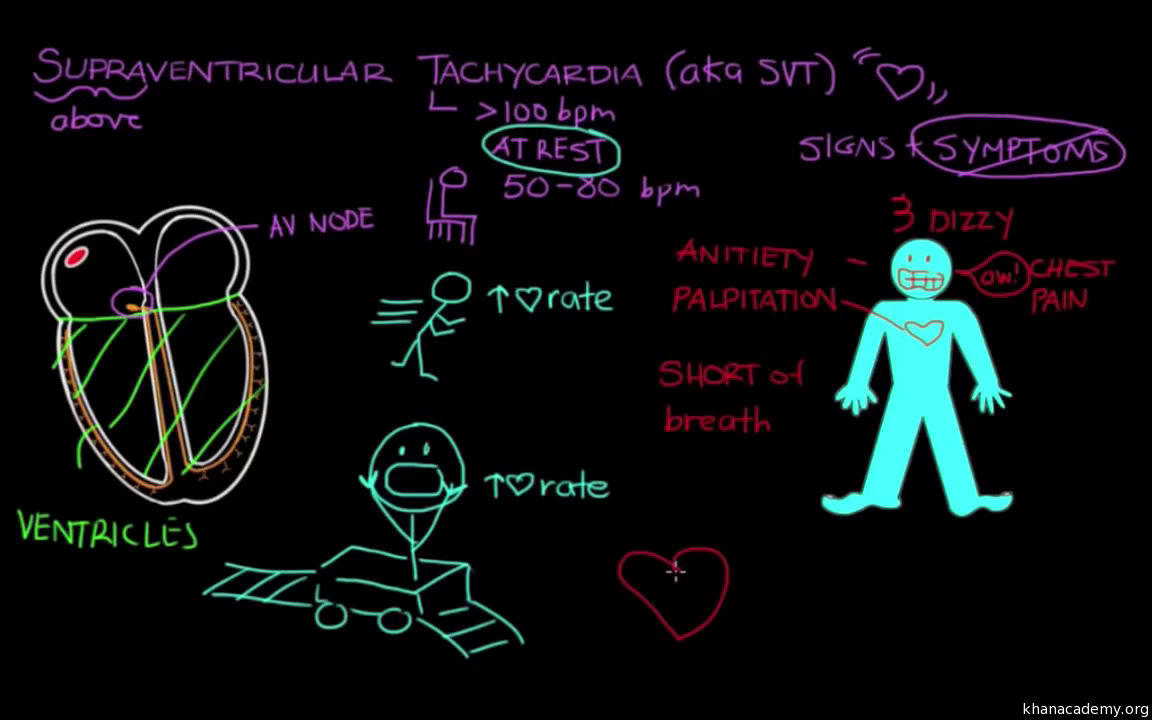 SUPRAVENTRICULAR TACHYCARDIA (aka SVT)
above
>100 bpm
AT REST
50-80 bpm
SIGNS + SYMPTOMS
AV NODE
↑♡rate
↑♡rate
VENTRICLES
3 DIZZY
ANITIETY -
PALPITATION
SHORT of
breath
ow!
CHEST
PAIN
khanacademy.org